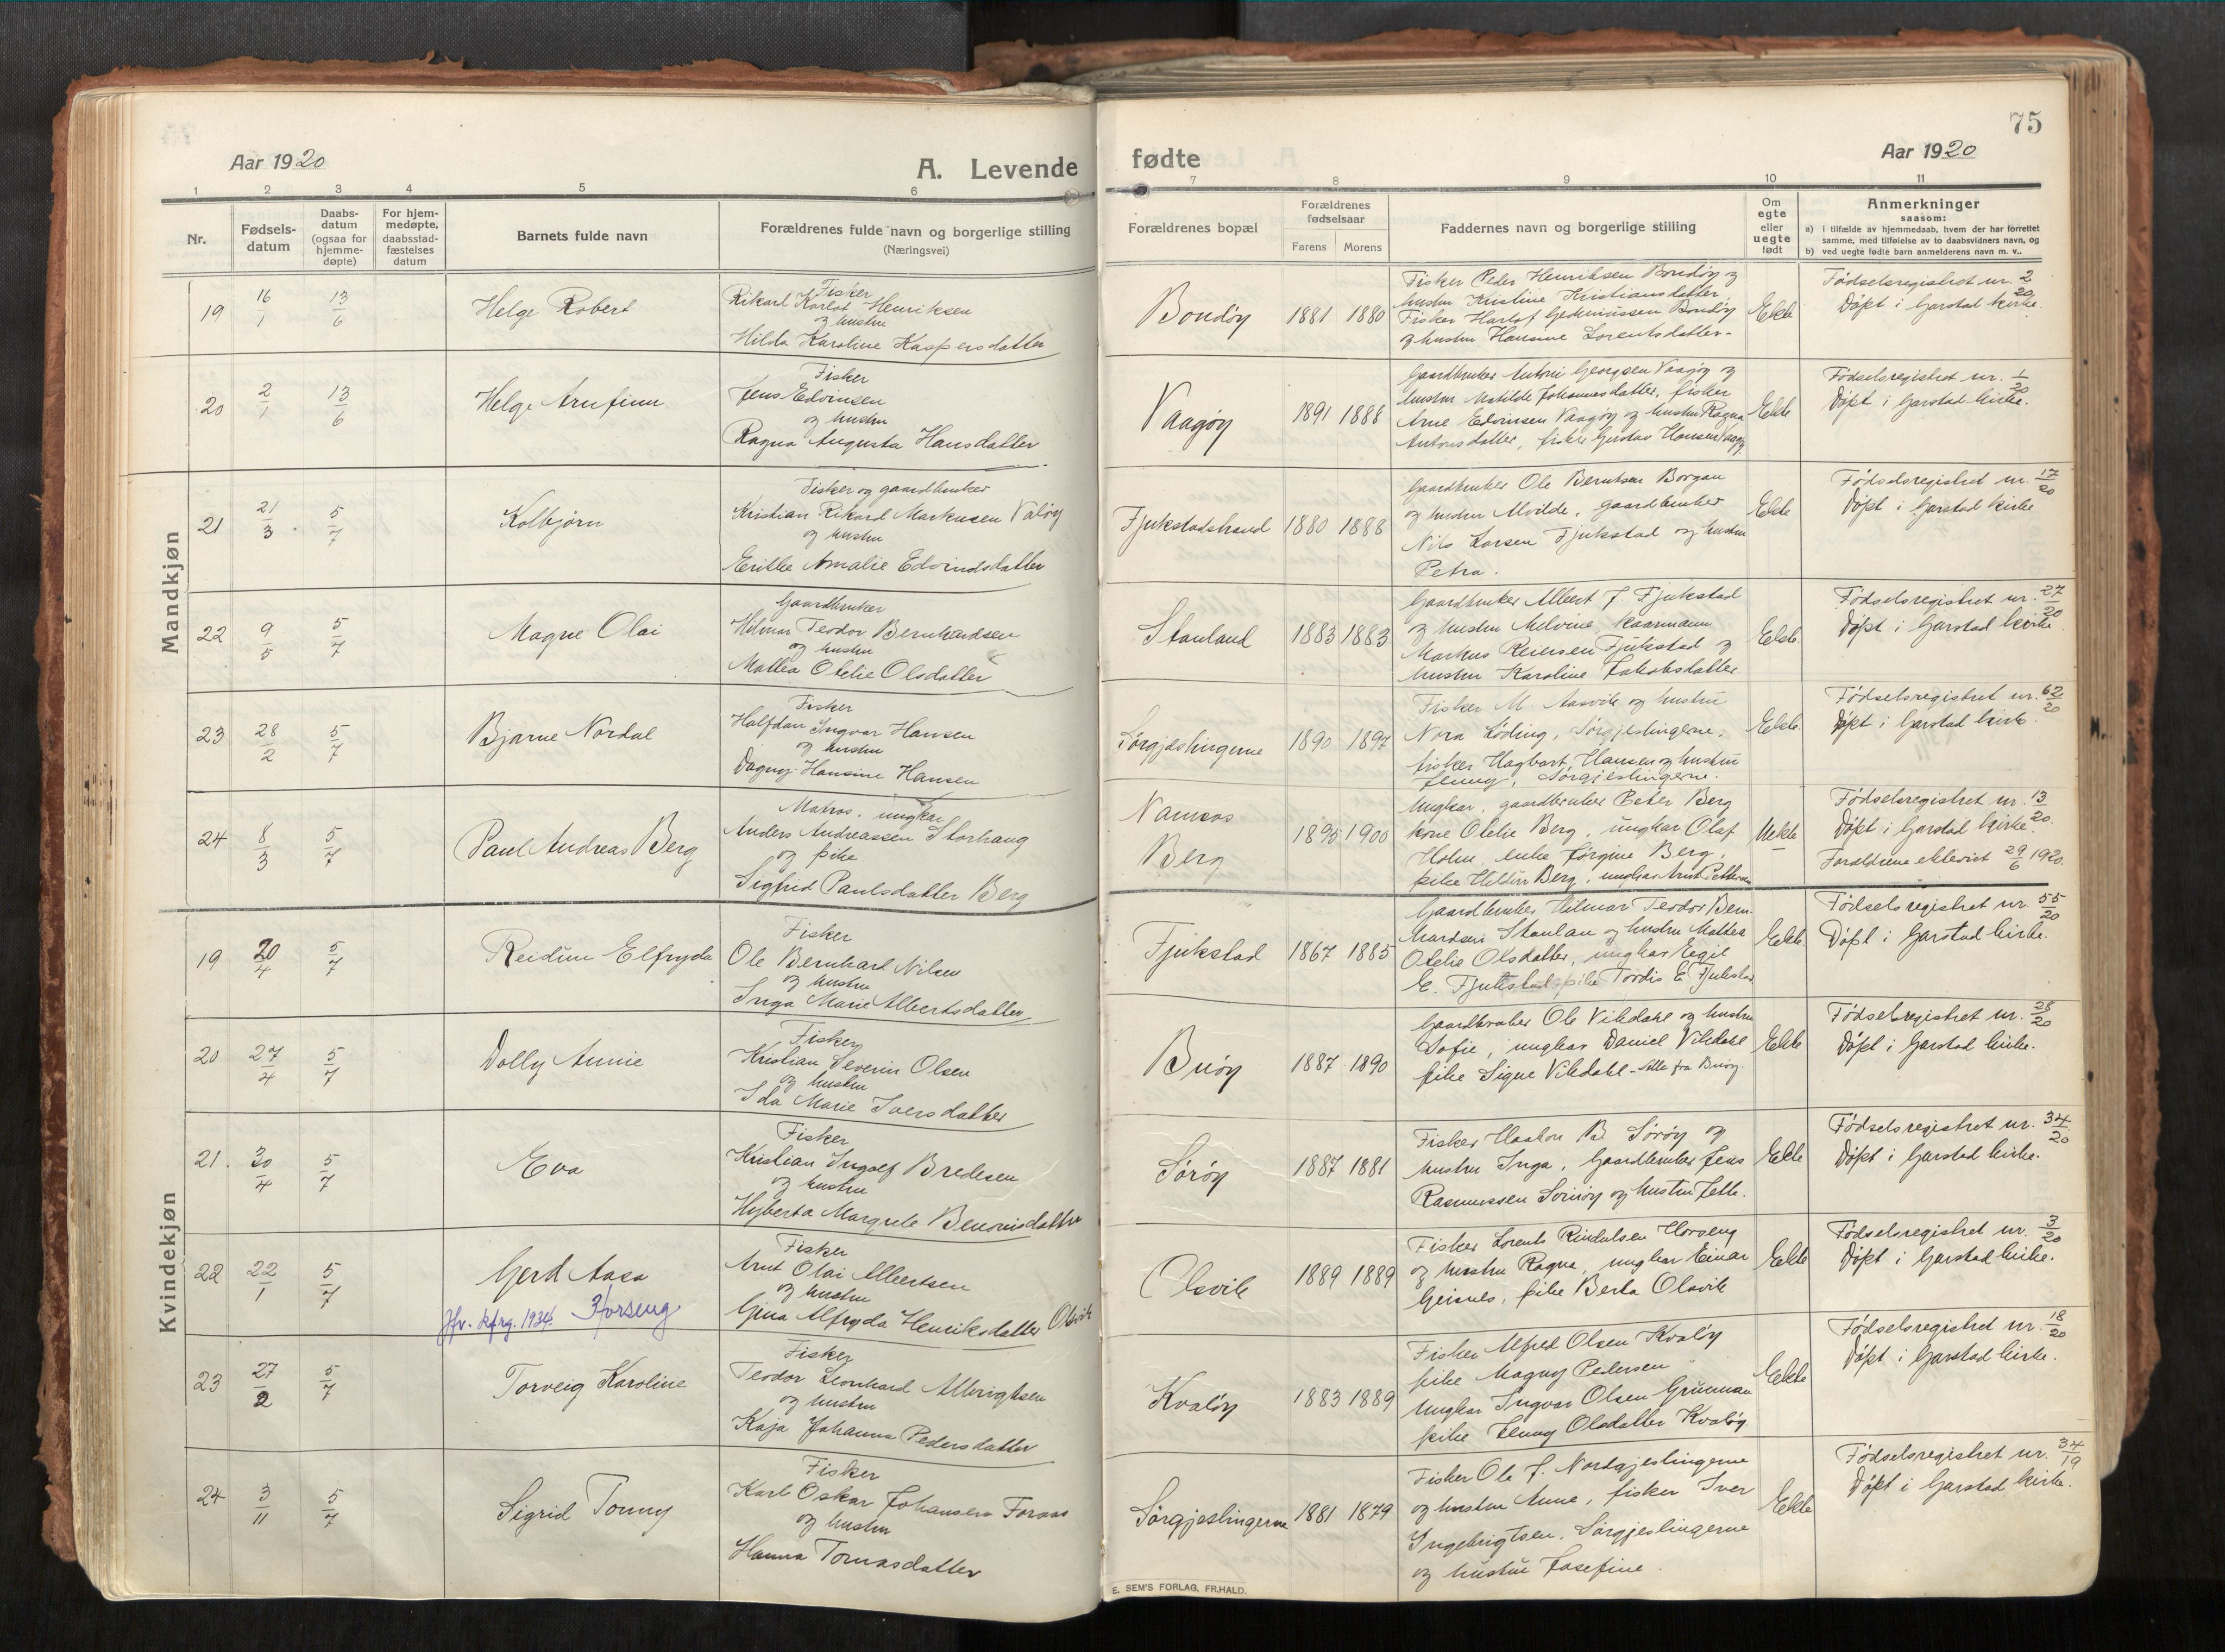 75
Aar 1920
A. Levende
fødte
Aar 1920
1 2 3 4 5 6 7 8 9 10 11
Nr.
Fødsels-
datum
Daabs-
datum
(ogsaa for
hjemme-
døpte)
For hjem-
medøpte,
daabsstad-
fæstelses
datum
Barnets fulde navn
Forældrenes fulde navn og borgerlige stilling
(Næringsvei)
Forældrenes bopæl
Forældrenes
fødselsaar
Farens Morens
Faddernes navn og borgerlige stilling
Om
egte
eller
uegte
født
Anmerkninger
saasom:
a) i tilfælde av hjemmedaab, hvem der har forrettet
samme, med tilføielse av to daabsvidners navn, og
b) ved uegte fødte barn anmelderens navn m. v..
Mandkjøn
19 16/1 13/6 Helge Robert
Fisker
Rikard Karlot Henriksen
og hustru
Hilda Karoline Kaspersdatter
Bondøy 1881 1880
Fisker Peder Henriksen Bondøy og
hustru Kristine Kristiansdatter
Fisker Harlof Bondøy
og hustru Hansine Lorentsdatter.
Ekte
Fødselsregistret nr. 2/20
Døpt i Garstad kirke.
20 2/1 13/6 Helge Arnfinn
Fisker
Jens Edvinsen
og hustru
Ragna Augusta Hansdatter
Vaagøy 1891 1888
Gaardbruker Antoni Georgsen Vaagøy og
hustru Matilde Johannesdatter, fisker
Arne Edvinsen Vaagøy og hustru Ragna
Antonsdatter, fisker Gustav Hansen Vaagøy
Ekte
Fødselsregistret nr. 1/20
Døpt i Garstad kirke.
21 21/3 5/7 Kolbjørn
Fisker og gaardbruker
Kristian Rikard Markusen Valøy
og hustru
Erikke Amalie Edvindsdatter
Fjukstadstrand 1880 1888
Gaardbruker Ole Berntsen Borgan
og hustru Alvilde, gaardbruker
Nils Larsen Fjukstad og hustru
Petra.
Ekte
Fødselsregistret nr. 17/20
Døpt i Garstad kirke
22 9/5 5/7 Magne Olai
Gaardbruker
Hilmar Teodor Bernhardsen
og hustru
Mattea Otelie Olsdatter
Stanland 1883 1883
Gaardbruker Albert J. Fjukstad
og hustru Melvine, kaarmann
Markus Reiersen Fjukstad og
hustru Karoline Jakobsdatter.
Ekte
Fødselsregistret nr. 27/20
Døpt i Garstad kirke.
23 28/2 5/7 Bjarne Nordal
Fisker
Halfdan Ingvar Hansen
og hustru
Dagny Hansine Hansen
Sørgjeslingerne 1890 1897
Fisker M. Aasvik og hustru
Nora Løding, Sørgjeslingerne,
fisker Hagbart Hansen og hustru
Jenny, Sørgjeslingerne.
Ekte
Fødselsregistret nr. 62/20
Døpt i Garstad kirke.
24 8/3 5/7 Paul Andreas Berg
Matros, ungkar
Anders Andreassen Storhaug
og pike
Sigfrid Paulsdatter Berg
Namsos
Berg
1895 1900
Ungkar, gaardbruker Peter Berg
kone Otelie Berg, ungkar Olaf
Holm, enke Jørgine Berg,
pike Berg, ungkar Arnt Pettersen
Uekte
Fødselsregistret nr. 13/20.
Døpt i Garstad kirke.
Forældrene ekteviet 29/6 1920.
Kvindekjøn
19 20/4 5/7 Reidun Elfryda
Fisker
Ole Bernhart Nilsen
og hustru
Inga Marie Albertsdatter
Fjukstad 1867 1885
Gaardbruker Hilmar Teodor Bern-
hardsen Stanlan og hustru Mattea
Otelie Olsdatter, ungkar Egil
E. Fjukstad, pike Tordis E. Fjukstad
Ekte
Fødselsregistret nr. 55/20
Døpt i Garstad kirke.
20 27/4 5/7 Dolly Annie
Fisker
Kristian Severin Olsen
og hustru
Ida Marie Iversdatter
Buøy 1887 1890
Gaardbruker Ole Vikdahl og hustru
Sofie, ungkar Daniel Vikdahl
pike Signe Vikdahl - Alle fra Buøy.
Ekte
Fødselsregistret nr. 28/20
Døpt i Garstad kirke.
21. 30/4 5/7 Eva
Fisker
Kristian Ingolf Bredesen
og hustru
Hyberta Margrete Benonisdatter
Sørøy 1887 1881
Fisker Haakon B. Sørøy og
hustru Inga, Gaardbruker Jens
Rasmussen Sørøy og hustru Jette.
Ekte
Fødselsregistret nr. 34/20
Døpt i Garstad kirke.
22 22/1 5/7 Gerd Aasa
Jfr. kfrg. 1934. Horseng
Fisker
Arnt Olai Albertsen
og hustru
Gina Alfryda Henriksdatter Olsvik
Olsvik 1889 1889
Fisker Lorents Rindulsen Horseng
og hustru Ragna, ungkar Einar
Geisnes, pike Berta Olsvik
Ekte
Fødselsregistret nr. 3/20
Døpt i Garstad kirke.
23 27/2 5/7 Torveig Karoline
Fisker
Teodor Leonhard Albrigtsen
og hustru
Kaja Johanna Pedersdatter
Kvaløy 1883 1889
Fisker Alfred Olsen Kvaløy
pike Magny Pedersen "
Ungkar Ingvar Olsen Grunnan
pike Jenny Olsdatter Kvaløy.
Ekte
Fødselsregistret nr. 18/20
Døpt i Garstad kirke.
24 3/11 5/7 Sigrid Tonny
Fisker
Karl Oskar Johansen Foraas
og hustru
Hanna Tomasdatter
Sørgjeslingerne 1881 1879
Fisker Ole J. Nordgjeslingerne
og hustru Anne, fisker Iver
Ingebrigtsen, Sørgjeslingerne
og hustru Josefine.
Ekte
Fødselsregistret nr. 34/19
Døpt i Garstad kirke.
E. SEM'S FORLAG, FR.HALD.